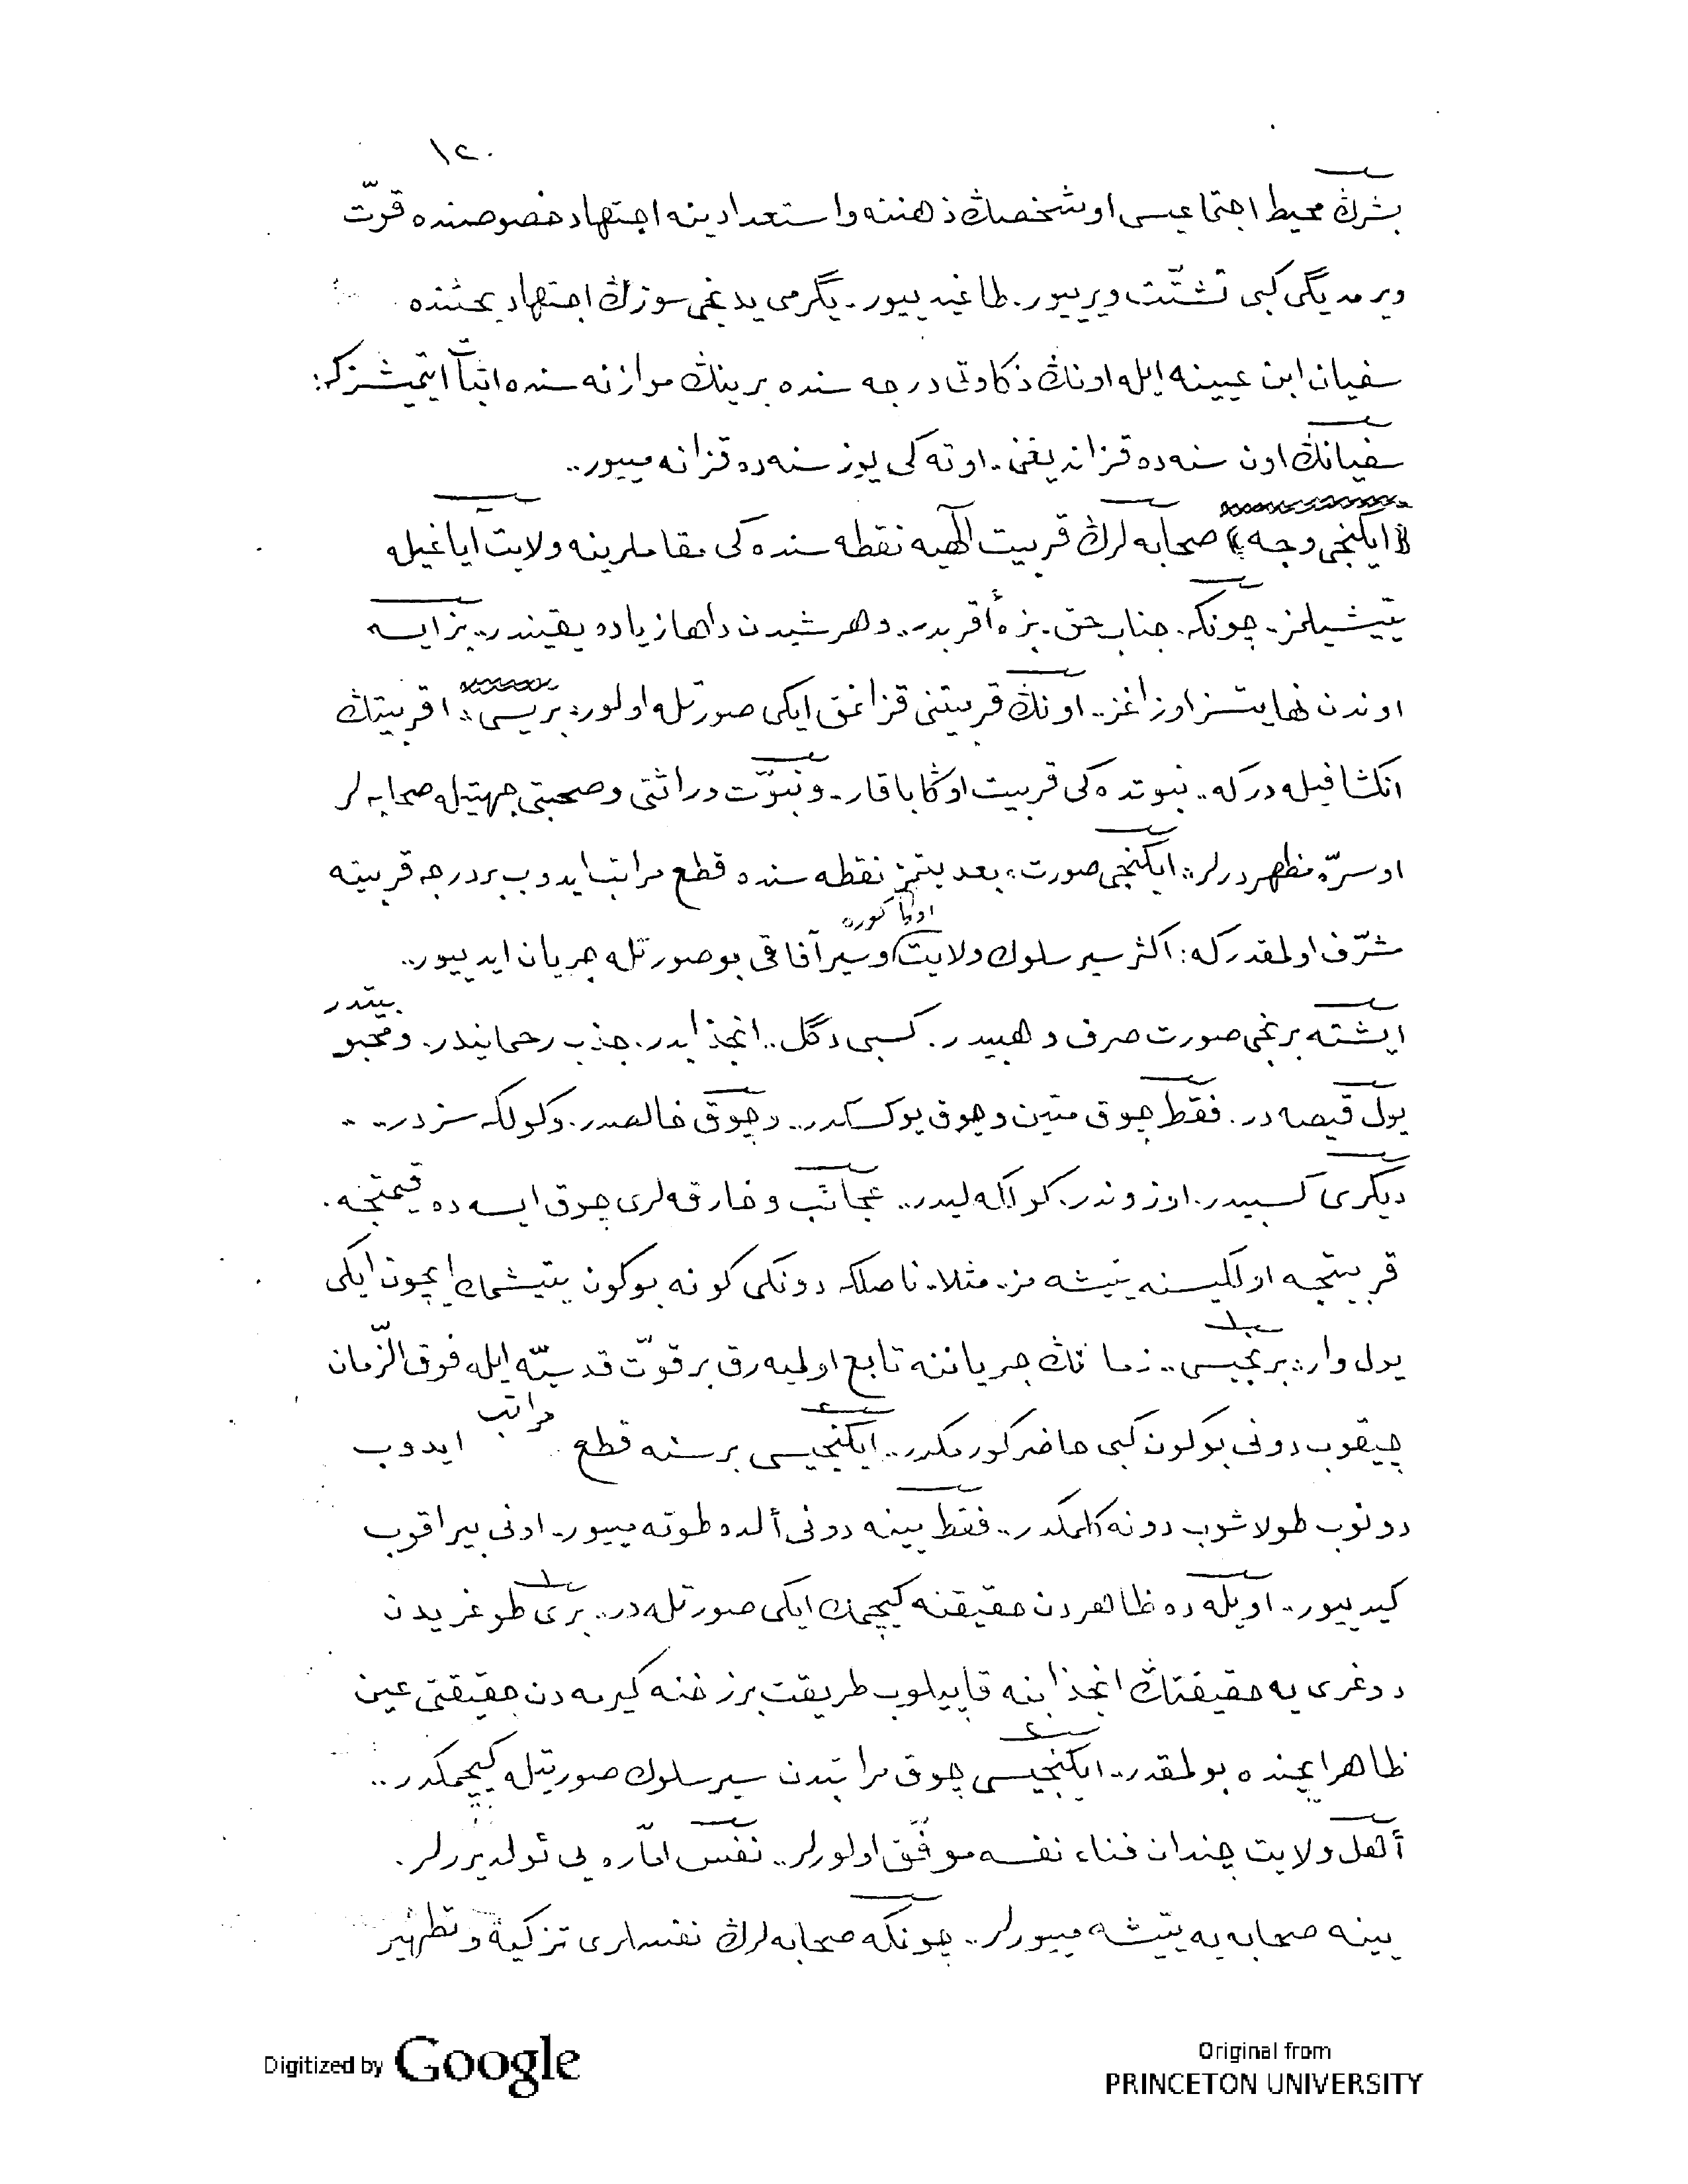 ١٢٠
بشرڭ محيط اجتماعيسى او شخصڭ ذهننه و استعدادينه اجتهاد خصوصنده قوّت
ويرمديگى كبى تشتّت ويرييور. طاغيدييور. يگرمى يدنجى سوزڭ اجتهاد بحثنده
سفيان ابن عيينه ايله اونڭ ذكاوتى درجه سنده برينڭ موازنه سنده اثبات ايتمشزكه:
سفيانڭ اون سنه ده قزانديغنى. اوته كى يوز سنه ده قزانه مييور..
﴿ايكنجى وجه﴾ صحابه لرڭ قربيت الٓهيه نقطه سنده كى مقاملرينه ولايت اياغيله
يتيشيلمز. چونكه. جناب حق. بزه أقربدر.. و هر شيدن داها زياده يقيندر.. بز ايسه
اوندن نهايتسز اوزاغز.. اونڭ قربيتنى قزانمق ايكى صورتله اولور: بريسى: اقربيتڭ
انكشافيله در كه.. نبوتده كى قربيت اوڭا باقار. و نبوّت وراثتى و صحبتى جهتيله صحابه لر
او سرّه مظهردرلر: ايكنجى صورت: بعديتمز نقطه سنده قطع مراتب ايدوب بر درجه قربيته
مشرّف اولمقدركه: اكثر سير سلوك ولايت اوڭا كوره و سير آفاقى بو صورتله جريان ايدييور..
ايشته برنجى صورت صرف وهبيدر. كسبى دگل.. انجذابدر. جذب رحمانيدر. و محبوبيتدر
يول قيصه در. فقط چوق متين و چوق يوكسكدر.. و چوق خالصدر. و كولگه سزدر..
ديگرى كسبيدر. اوزوندر. كولگه ليدر.. عجائب و خارقه لرى چوق ايسه ده قيمتجه.
قربيتجه اولكيسنه يتيشه مز. مثلا. ناصلكه دونكى كونه بوكون يتيشمك ايچون ايكى
يول وار: برنجيسى.. زمانڭ جرياننه تابع اولميه رق بر قوّت قدسيّه ايله فوق الزّمان
چيقوب دونى بوكون كبى حاضر كورمكدر.. ايكنجيسى بر سنه قطع مراتب ايدوب
دونوب طولاشوب دونه كلمكدر.. فقط يينه دونى ألده طوته مييور. اونى بيراقوب
كيدييور.. اويله ده ظاهردن حقيقته كيچمك ايكى صورتله در.. برى طوغريدن
دوغرى يه حقيقتڭ انجذابنه قاپيلوب طريقت برزخنه كيرمه دن حقيقتى عين
ظاهر ايچنده بولمقدر.. ايكنجيسى چوق مراتبدن سير سلوك صورتيله كيچمكدر..
أهل ولايت چندان فناء نفسه موفّق اولورلر.. نفس امّاره يى ئولديررلر.
يينه صحابه يه يتيشه مييورلر.. چونكه صحابه لرڭ نفسلرى تزكيه و تطهير
Digitized by Google
Original from
PRINCETON UNIVERSITY